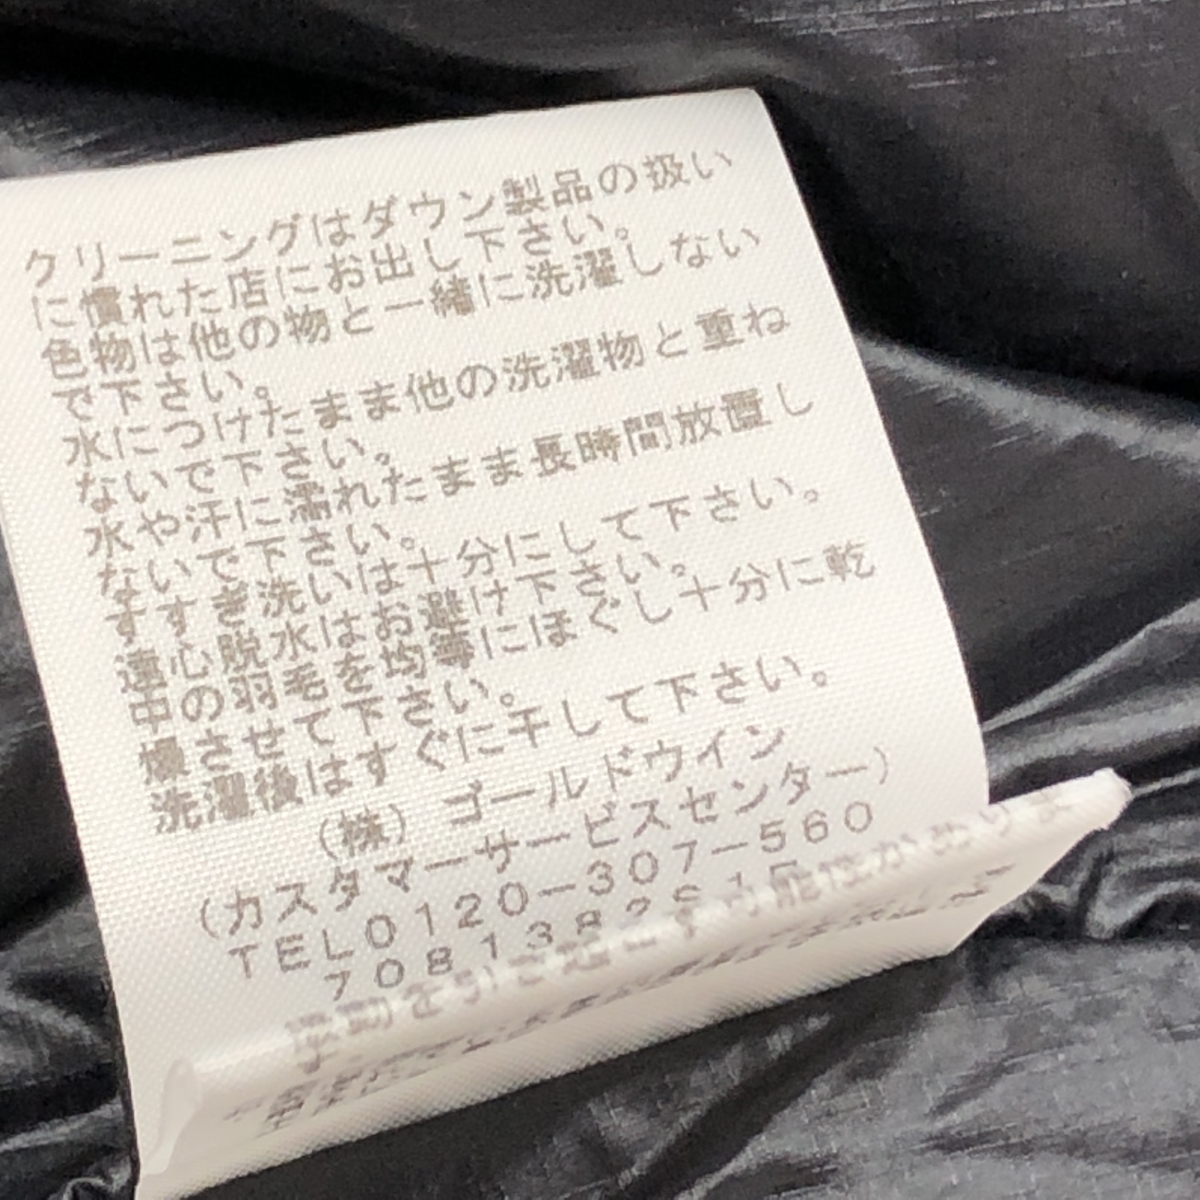 クリーニングはダウン製品の扱い
に慣れた店にお出し下さい。
色物は他の物と一緒に洗濯しない
で下さい。
水につけたまま他の洗濯物と重ね
ないで下さい。
水や汗に濡れたまま長時間放置し
ないで下さい。
すすぎ洗いは十分にして下さい。
遠心脱水はお避け下さい。
中の羽毛を均等にほぐし十分に乾
燥させて下さい。
洗濯後はすぐに干して下さい。
(株)ゴールドウイン
(カスタマーサービスセンター)
TEL0120-307-560
7081382
を引き起こす可能性があります